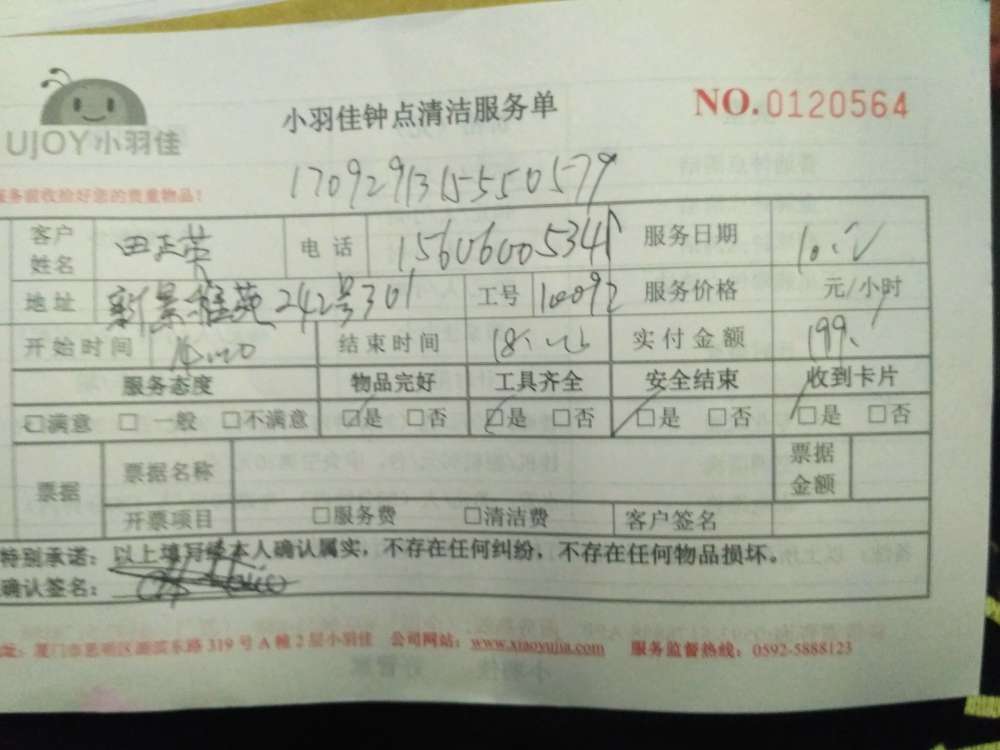 UJOY小羽佳
小羽佳钟点清洁服务单
NO.0120564
170929131555057
服务前收捡好您的贵重物品！
客户姓名 田正荣 电话 15606005341 服务日期
地址 新景雅苑242号301 工号 10092 服务价格 元/小时
开始时间 结束时间 实付金额 199.
服务态度 物品完好 工具齐全 安全结束 收到卡片
□满意 □一般 □不满意 □是 □否 □是 □否 □是 □否 □是 □否
票据 票据名称 票据金额
开票项目 □服务费 □清洁费 客户签名
特别承诺：以上填写经本人确认属实，不存在任何纠纷，不存在任何物品损坏。
确认签名：
址：厦门市思明区湖滨东路319号A幢2层小羽佳 公司网站：www.xiaoyujia.com 服务监督热线：0592-5888123